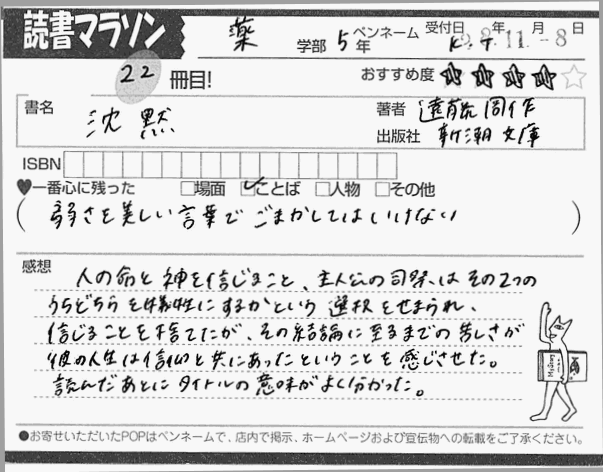 読書マラソン
薬 学部 5年 ペンネーム K.T 受付日 年 11. -8日
22 冊目! おすすめ度 ★★★★☆
書名 沈黙
著者 遠藤周作
出版社 新潮文庫
ISBN
♥一番心に残った □場面 ☑ことば □人物 □その他
(弱さを美しい言葉でごまかしてはいけない)
感想
人の命と神を信じること、主人公の司祭はその2つの
うちどちらを犠牲にするかという選択をせまられ、
信じることを捨てたが、その結論に至るまでの苦しさが
彼の人生は信仰と共にあったということを感じさせた。
読んだあとにタイトルの意味がよく分かった。
●お寄せいただいたPOPはペンネームで、店内で掲示、ホームページおよび宣伝物への転載をご了承ください。